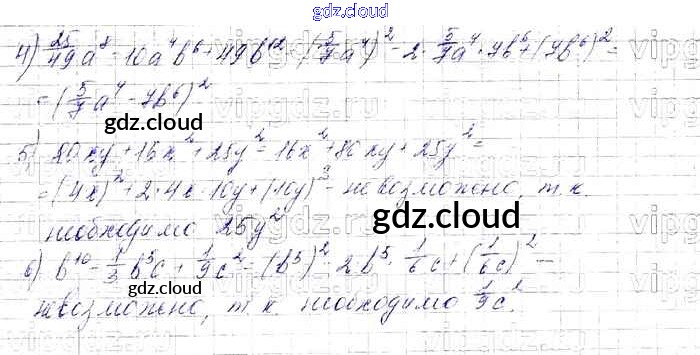 gdz.cloud
4) 25/49 a⁸ - 10a⁴b⁶ + 49b¹² = (5/7 a⁴)² - 2 · 5/7 a⁴ · 7b⁶ + (7b⁶)² =
= (5/7 a⁴ - 7b⁶)²
gdz.cloud
5) 80xy + 16x² + 25y² = 16x² + 80xy + 25y² =
= (4x)² + 2 · 4x · 10y + (10y)² - невозможно, т.к.
gdz.cloud
необходимо 25y²
6) b¹⁰ - 1/3 b⁵c + 1/9 c² = (b⁵)² - 2 · b⁵ · 1/6 c + (1/6 c)² -
gdz.cloud
невозможно, т.к. необходимо 1/9 c²